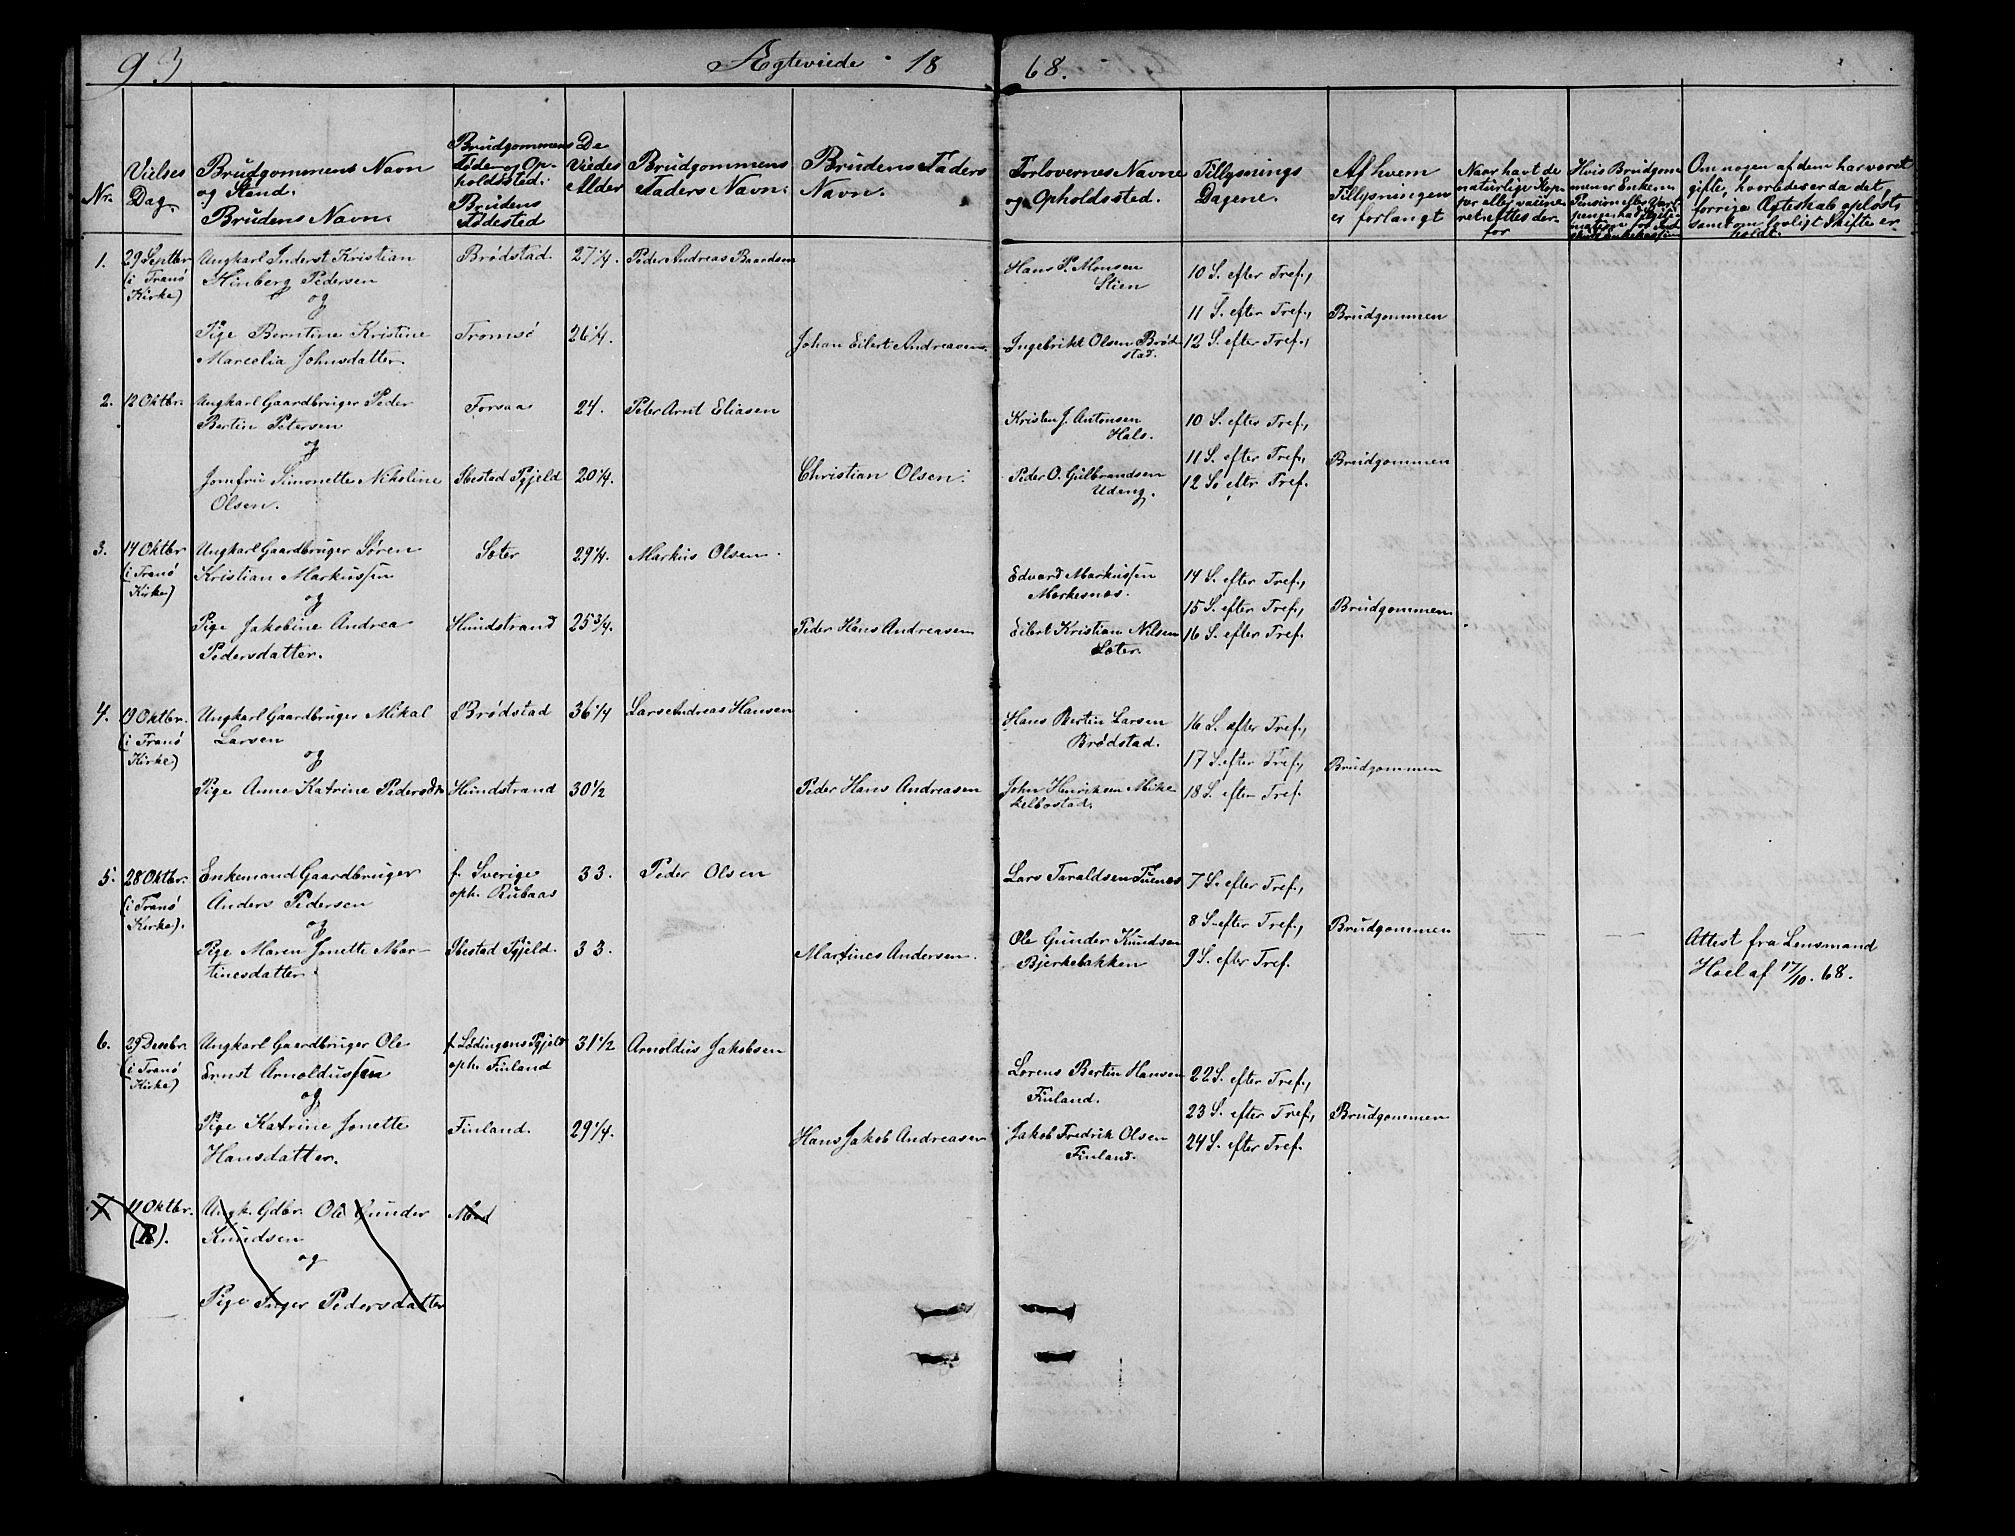 93
Ægteviede 18 68.
Nr.
Vielses Dag.
Brudgommens Navn og Stand. Brudens Navn.
Brudgommens Føde og Opholdsted. Brudens Fødested
De Viedes Alder
Brudgommens Faders Navn.
Brudens Faders Navn.
Forlovernes Navne og Opholdssted.
Tillysnings Dagene.
Af hvem Tillysningen er forlangt
Naar havt de naturlige Kopper eller vaccineret rettes derfor
Hvis Brudgommen er Enkem
Om nogen af dem har været gift, hvorledes er da det forrige Ægteskab opløst, samt om lovligt Skifte er holdt.
1. 29 Septbr. (i Tranø Kirke)
Ungkarl Inderst Kristian Hinberg Pedersen
og
Pige Berntine Kristine Marcelia Johnsdatter.
Brødstad. 27 1/4. Peder Andreas Baardsen
Tromsø 26 1/4. Johan Eilert Andreasen.
Hans P. Monsen Stien
Ingebrikt Olsen Brødstad.
10 S. efter Tref.,
11 S. efter Tref.,
12 S. efter Tref.,
Brudgommen
2. 12 Oktbr.
Ungkarl Gaardbruger Peder Bertin Petersen
og
Jomfru Simonette Nikoline Olsen.
Forsaa 24. Peter Arnt Eliasen
Ibestad Pgjeld 20 1/4. Christian Olsen.
Kristen J. Antonsen Hals.
Peder O. Gulbrandsen Udeng.
10 S. efter Tref.,
11 S. efter Tref.,
12 S. eftr Tref.
Brudgommen
3. 14 Oktbr (i Tranø Kirke)
Ungkarl Gaardbruger Søren Kristian Markussen
og
Pige Jakobine Andrea Pedersdatter.
Sæter 29 1/4. Markus Olsen.
Hundstrand 25 3/4. Peder Hans Andreasen
Edvard Markussen Markesnæs.
Eilert Kristian Nilsen Sæter.
14 S. efter Tref.,
15 S. efter Tref.,
16 S. efter Tref.
Brudgommen
4. 19 Oktbr. (i Tranø Kirke)
Ungkarl Gaardbruger Mikal Larsen
og
Pige Anne Katrine Pedersdtr
Brødstad 36 1/4 Lars Andreas Hansen
Hundstrand 30 1/2 Peder Hans Andreasen
Hans Bertin Larsen Brødstad.
John Henriksen Mikkelbostad.
16 S. efter Tref.,
17 S. efter Tref.,
18 S. efter Tref.
Brudgommen
5. 28 Oktbr. (i Tranø Kirke).
Enkemand Gaardbruger Anders Pedersen
og
Pige Maren Jonette Martinesdatter.
f. Sverige oph. Rubaas 33. Peder Olsen
Ibestad Pgjeld. 33. Martines Andersen.
Lars Taraldsen Finnes
Ole Gunder Knudsen Bjerkebakken
7 S. efter Tref.,
8 S. efter Tref.,
9 S. efter Tref.
Brudgommen
Attest fra Lensmand Hoel af 17/10. 68.
6. 29 Desebr. (i Tranø Kirke)
Ungkarl Gaardbruger Ole Ernst Arnoldussen
og
Pige Katrine Jonette Hansdatter.
f. Lødingens Pgjeld oph. Finland 31 1/2 Arnoldus Jakobsen
Finland. 29 1/4. Hans Jakob Andreasen
Lorens Bertin Hansen Finland.
Jakob Fredrik Olsen Finland.
22 S. efter Tref.,
23 S. efter Tref.,
24 S. efter Tref.
Brudgommen
7 11 Oktbr. (R).
Ungk. Gdbr. Ole Gunder Knudsen
og
Pige Inger Pedersdatter